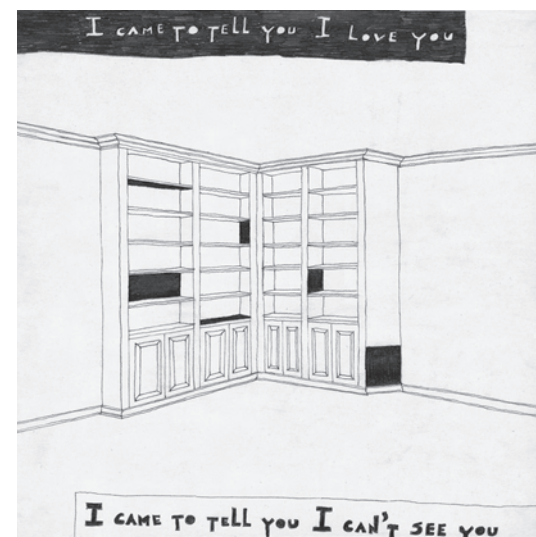 I CAME TO TELL YOU I LOVE YOU
I CAME TO TELL YOU I CAN'T SEE YOU